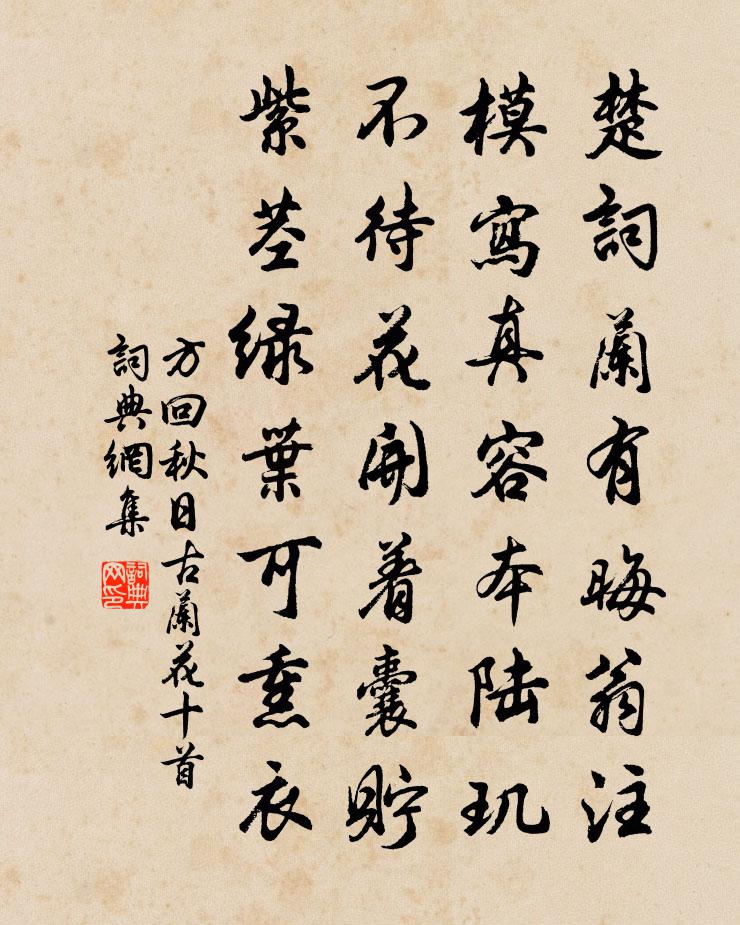 楚詞蘭有晦翁注
模寫真容本陆玑
不待花開着囊貯
紫茎緑葉可熏衣
方回秋日古蘭花十首
詞典網集
詞典网印